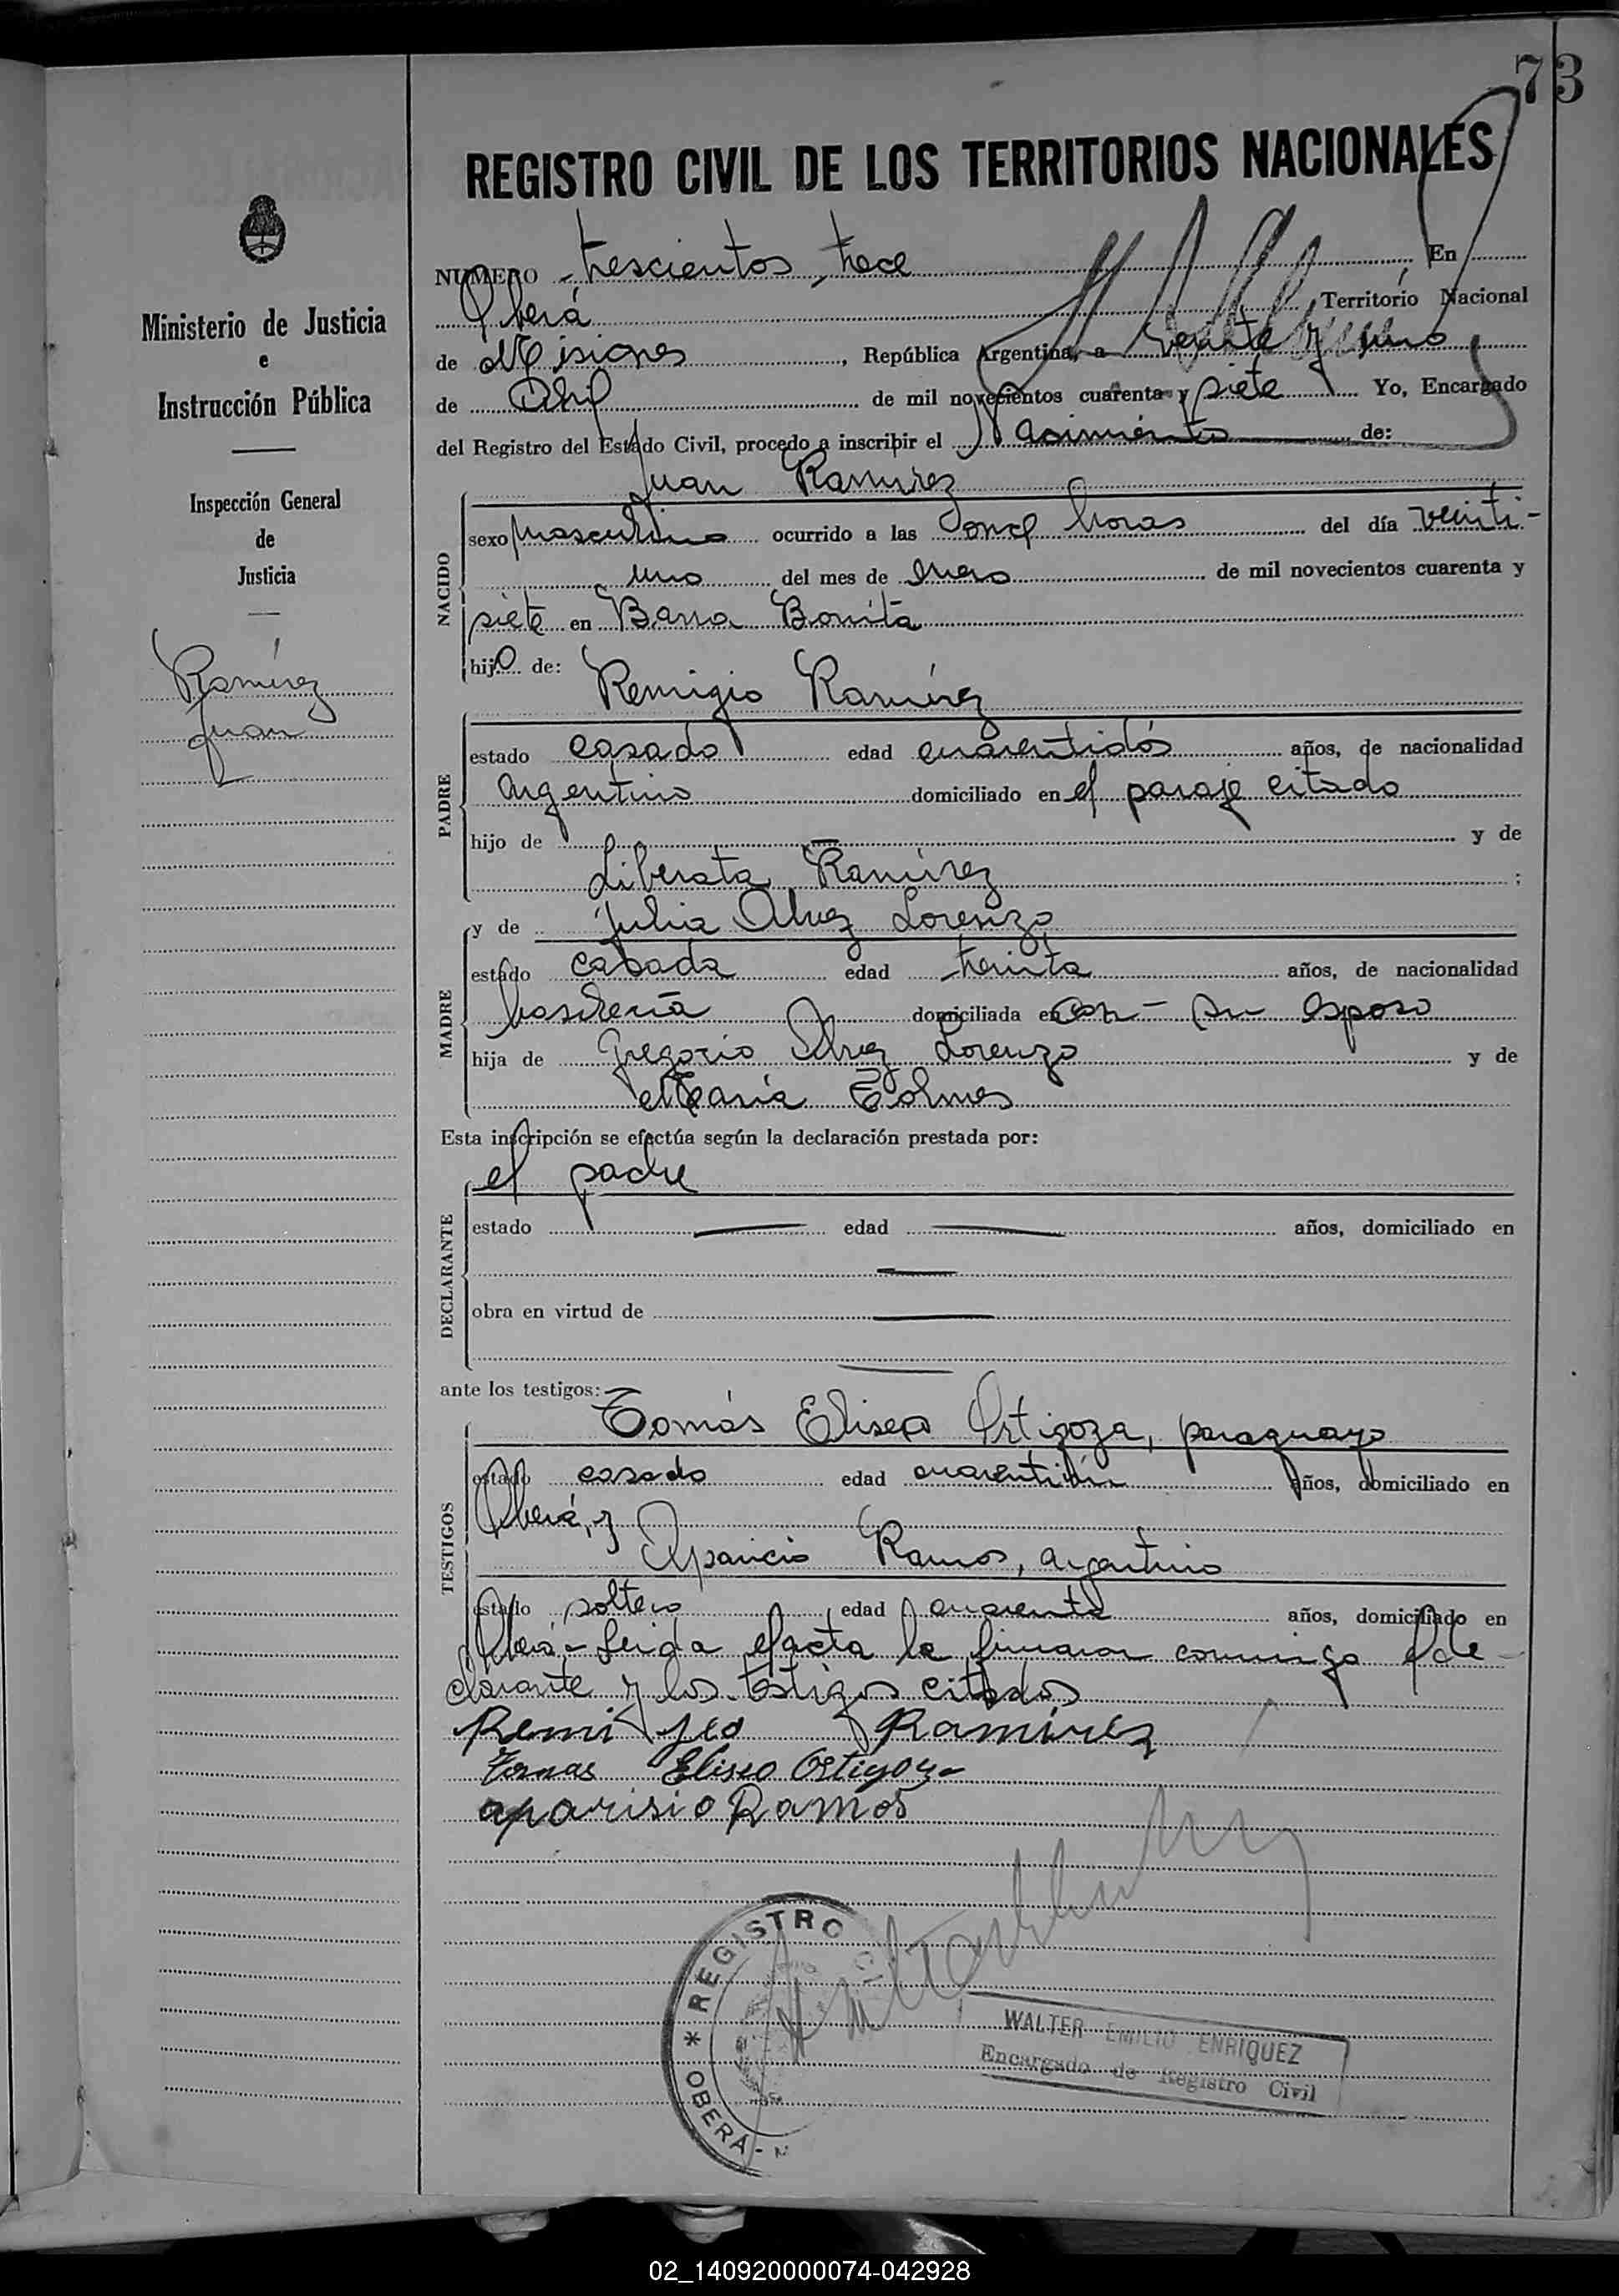 73
REGISTRO CIVIL DE LOS TERRITORIOS NACIONALES
Ministerio de Justicia
e
Instrucción Pública
Inspección General
de
Justicia
Ramírez
Juan
NUMERO trescientos trece En
Oberá Territorio Nacional
de Misiones, República Argentina, a veinte y uno
de Abril de mil novecientos cuarenta y siete Yo, Encargado
del Registro del Estado Civil, procedo a inscribir el Nacimiento de:
Juan Ramirez
NACIDO
sexo masculino ocurrido a las once horas del día veinti-
uno del mes de enero de mil novecientos cuarenta y
siete en Barra Bonita
hijo de:
Remigio Ramírez
PADRE
estado casado edad cuarentidós años, de nacionalidad
argentino domiciliado en el paraje citado
hijo de — y de
Liberata Ramírez ;
y de Julia Alvez Lorenzo
MADRE
estado casada edad treinta años, de nacionalidad
brasileña domiciliada en con - su esposo
hija de Gregorio Alvez Lorenzo y de
María
Esta inscripción se efectúa según la declaración prestada por:
el padre
DECLARANTE
estado — edad — años, domiciliado en
—
obra en virtud de —
—
ante los testigos:
Tomás Eliseo Ortigoza, paraguayo
TESTIGOS
estado casado edad años, domiciliado en
Oberá, y
Aparicio Ramos, argentino
estado soltero edad cuarenta años, domiciliado en
Oberá - Leida el acta la firmaron conmigo el de-
clarante y los testigos citados
Remi jio Ramirez
Tomas Eliseo Ortigoza
aparisio Ramos
* REGISTRO CI
OBERÁ -
WALTER EMILIO ENRIQUEZ
Encargado de Registro Civil
02_140920000074-042928